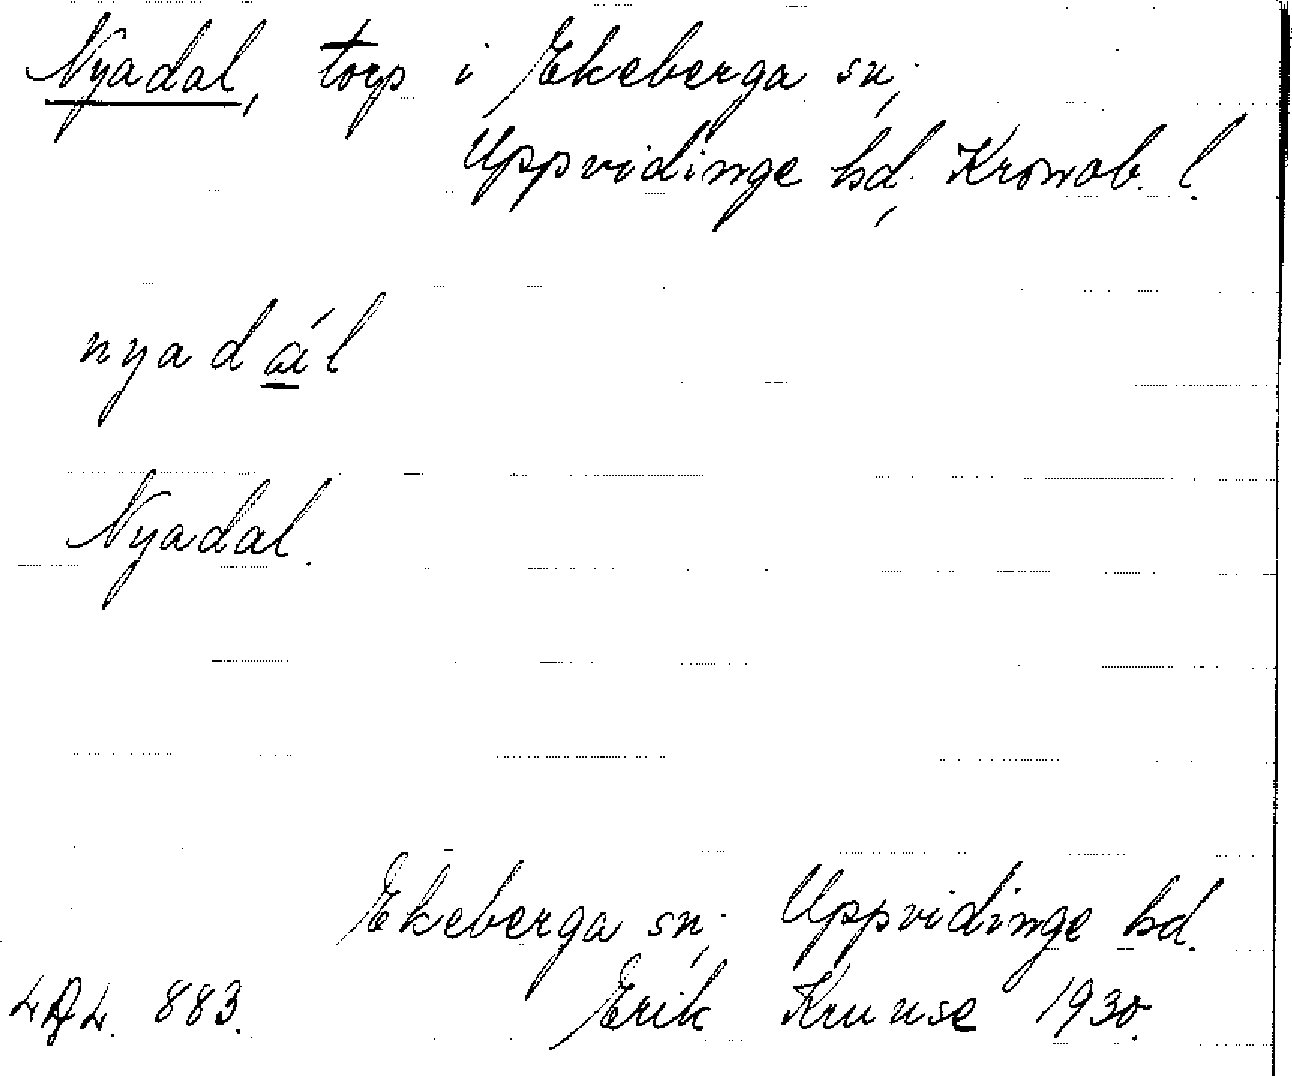 Nyadal, torp i Ekeberga sn.,
Uppvidinge hd., Kronob. l.
nyadál
Nyadal.
Ekeberga sn., Uppvidinge hd.
883. Erik Kruuse 1930.